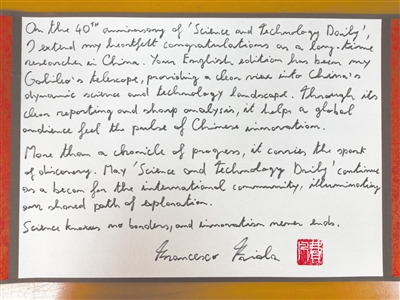 On the 40TH anniversary of 'Science and Technology Daily',
I extend my heartfelt congratulations as a long-time
researcher in China. Your English edition has been my
Galileo's telescope, providing a clear view into China's
dynamic science and technology landscape. Through its
clear reporting and sharp analysis, it helps a global
audience feel the pulse of Chinese innovation.
More than a chronicle of progress, it carries the spark
of discovery. May 'Science and Technology Daily' continue
as a beacon for the international community, illuminating
our shared path of exploration.
Science knows no borders, and innovation never ends.
Francesco Faiola